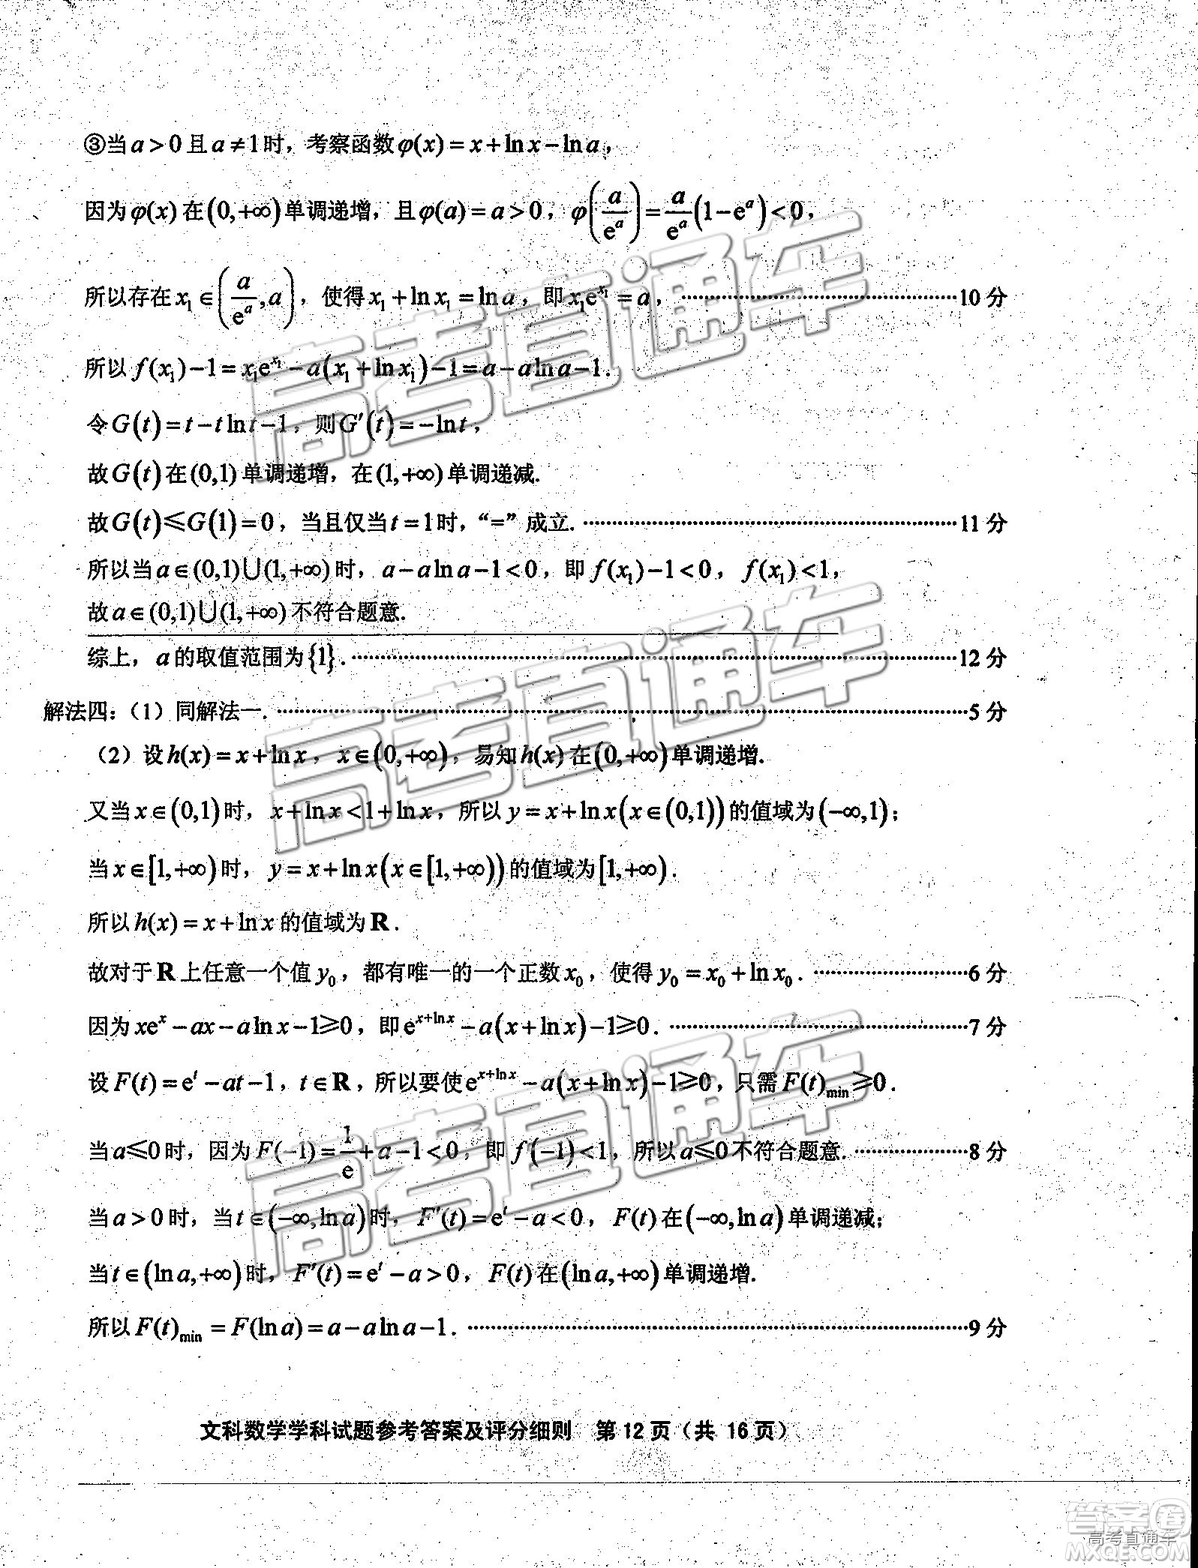 ③当a>0且a≠1时，考察函数φ(x)=x+lnx−lna，
因为φ(x)在(0,+∞)单调递增，且φ(a)=a>0，φ(a/e^a)=a/e^a(1−e^a)<0，
所以存在x₁∈(a/e^a,a)，使得x₁+lnx₁=lna，即x₁e^{x₁}=a，……………………10分
所以f(x₁)−1=x₁e^{x₁}−a(x₁+lnx₁)−1=a−alna−1.
令G(t)=t−tlnt−1，则G′(t)=−lnt，
故G(t)在(0,1)单调递增，在(1,+∞)单调递减.
故G(t)≤G(1)=0，当且仅当t=1时，“=”成立.……………………11分
所以当a∈(0,1)∪(1,+∞)时，a−alna−1<0，即f(x₁)−1<0，f(x₁)<1，
故a∈(0,1)∪(1,+∞)不符合题意.
综上，a的取值范围为{1}.……………………12分
解法四：（1）同解法一.……………………5分
（2）设h(x)=x+lnx，x∈(0,+∞)，易知h(x)在(0,+∞)单调递增.
又当x∈(0,1)时，x+lnx<1+lnx，所以y=x+lnx(x∈(0,1))的值域为(−∞,1)；
当x∈[1,+∞)时，y=x+lnx(x∈[1,+∞))的值域为[1,+∞).
所以h(x)=x+lnx的值域为R.
故对于R上任意一个值y₀，都有唯一的一个正数x₀，使得y₀=x₀+lnx₀.……………………6分
因为xe^x−ax−alnx−1≥0，即e^{x+lnx}−a(x+lnx)−1≥0.……………………7分
设F(t)=e^t−at−1，t∈R，所以要使e^{x+lnx}−a(x+lnx)−1≥0，只需F(t)min≥0.
当a≤0时，因为F(−1)=1/e+a−1<0，即f(−1)<1，所以a≤0不符合题意.……………………8分
当a>0时，当t∈(−∞,lna)时，F′(t)=e^t−a<0，F(t)在(−∞,lna)单调递减；
当t∈(lna,+∞)时，F′(t)=e^t−a>0，F(t)在(lna,+∞)单调递增.
所以F(t)min=F(lna)=a−alna−1.……………………9分
文科数学学科试题参考答案及评分细则 第12页（共 16页）
高考直通车
高考直通车
高考直通车
答案卷
高考直通车
MXQE.COM